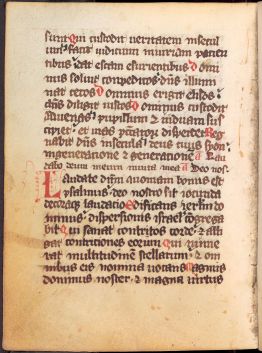 sunt Qui custodit veritatem in secul
um facit iudicium iniuriam pacien
tibus dat escam esurientibus Domi
nus soluit compeditos dns illumi
nat cecos Dominus erigit elisos
dns diligit iustos Dominus custodit
aduenas pupillum et uiduam sus
cipiet et uias pctorum disperdet Reg
nabit dns in secula deus tuus syon
in generatione et generatione a Lau
dabo deum meum in uita mea a Deo nos
Laudate dnm quoniam bonus est
psalmus deo nostro sit iocunda
decoraq laudatio Edificans ierlm do
minus dispersiones israel congrega
bit Qui sanat contritos corde et alli
gat contritiones eorum Qui nume
rat multitudinem stellarum et om
nibus eis nomina uocans Magnus
dominus noster et magna uirtus